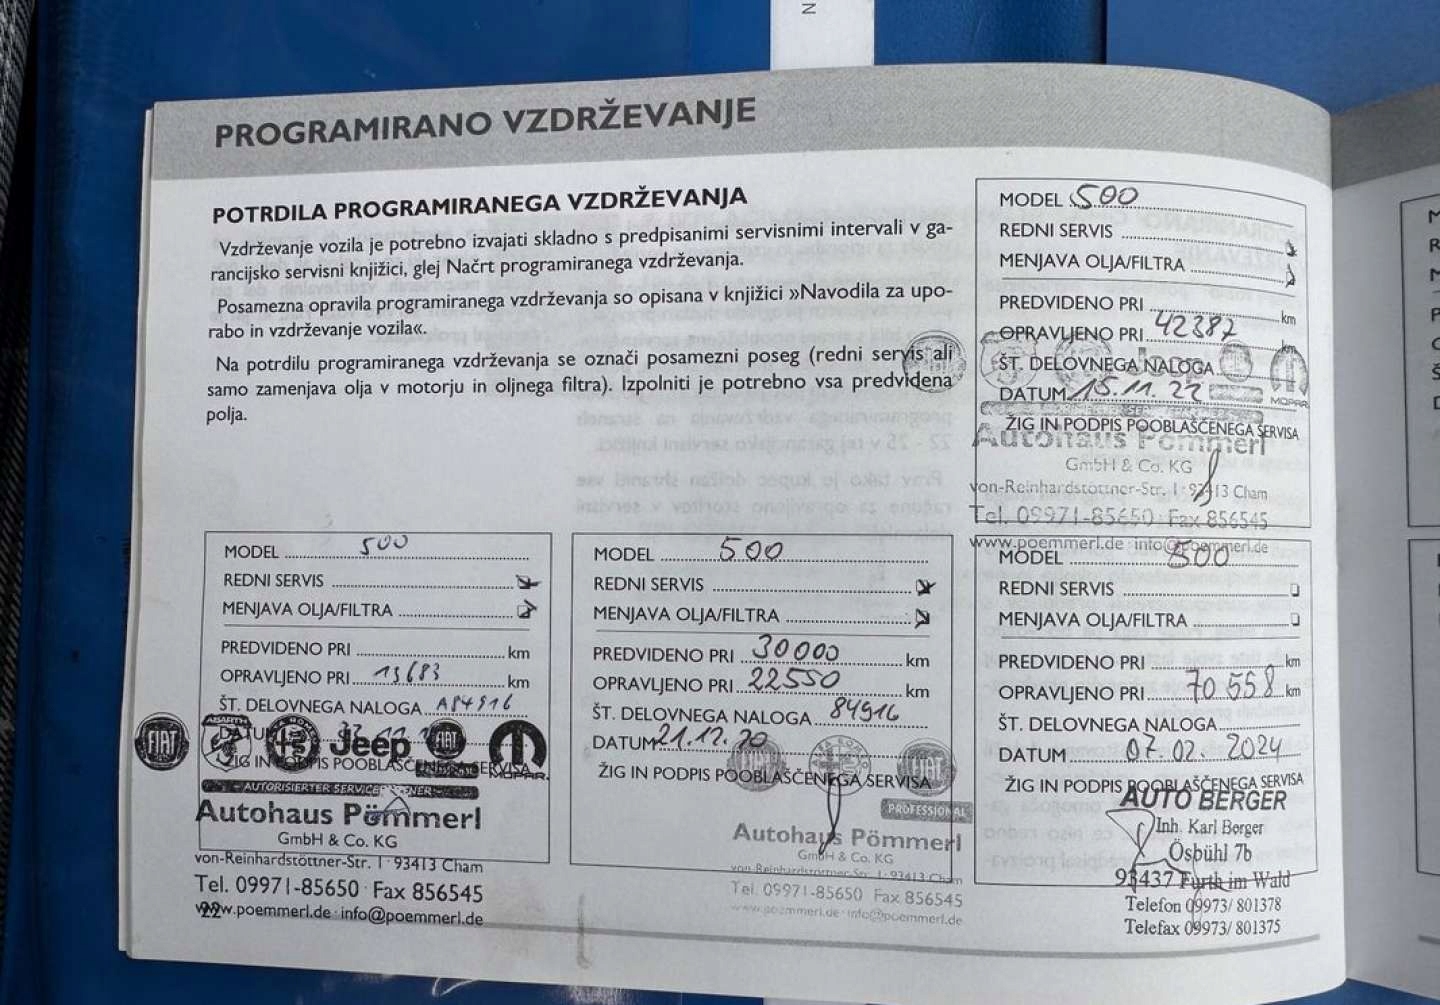 PROGRAMIRANO VZDRŽEVANJE
POTRDILA PROGRAMIRANEGA VZDRŽEVANJA
Vzdrževanje vozila je potrebno izvajati skladno s predpisanimi servisnimi intervali v ga-
rancijsko servisni knjižici, glej Načrt programiranega vzdrževanja.
Posamezna opravila programiranega vzdrževanja so opisana v knjižici »Navodila za upo-
rabo in vzdrževanje vozila«.
Na potrdilu programiranega vzdrževanja se označi posamezni poseg (redni servis ali
samo zamenjava olja v motorju in oljnega filtra). Izpolniti je potrebno vsa predvidena
polja.
MODEL 500
REDNI SERVIS
MENJAVA OLJA/FILTRA
PREDVIDENO PRI km
OPRAVLJENO PRI 42387 km
ŠT. DELOVNEGA NALOGA
DATUM 15.11.22
MOPAR
ŽIG IN PODPIS POOBLAŠČENEGA SERVISA
Autohaus Pömmerl
GmbH & Co. KG
von-Reinhardstöttner-Str. 1 · 93413 Cham
Tel. 09971-85650 · Fax 856545
www.poemmerl.de · info@poemmerl.de
MODEL 500
REDNI SERVIS
MENJAVA OLJA/FILTRA
PREDVIDENO PRI km
OPRAVLJENO PRI 13683 km
ŠT. DELOVNEGA NALOGA A84916
DATUM
FIAT ABARTH Jeep FIAT MOPAR
ŽIG IN PODPIS POOBLAŠČENEGA SERVISA
AUTORISIERTER SERVICEPARTNER
Autohaus Pömmerl
GmbH & Co. KG
von-Reinhardstöttner-Str. 1 · 93413 Cham
Tel. 09971-85650 · Fax 856545
www.poemmerl.de · info@poemmerl.de
22
MODEL 500
REDNI SERVIS
MENJAVA OLJA/FILTRA
PREDVIDENO PRI 30000 km
OPRAVLJENO PRI 22550 km
ŠT. DELOVNEGA NALOGA 84916
DATUM 21.12.20
FIAT FIAT
ŽIG IN PODPIS POOBLAŠČENEGA SERVISA
PROFESSIONAL
Autohaus Pömmerl
GmbH & Co. KG
von-Reinhardstöttner-Str. 1 · 93413 Cham
Tel. 09971-85650 · Fax 856545
www.poemmerl.de · info@poemmerl.de
MODEL 500
REDNI SERVIS
MENJAVA OLJA/FILTRA
PREDVIDENO PRI km
OPRAVLJENO PRI 70558 km
ŠT. DELOVNEGA NALOGA
DATUM 07.02. 2024
ŽIG IN PODPIS POOBLAŠČENEGA SERVISA
AUTO BERGER
Inh. Karl Berger
Ösbühl 7b
93437 Furth im Wald
Telefon 09973/ 801378
Telefax 09973/ 801375